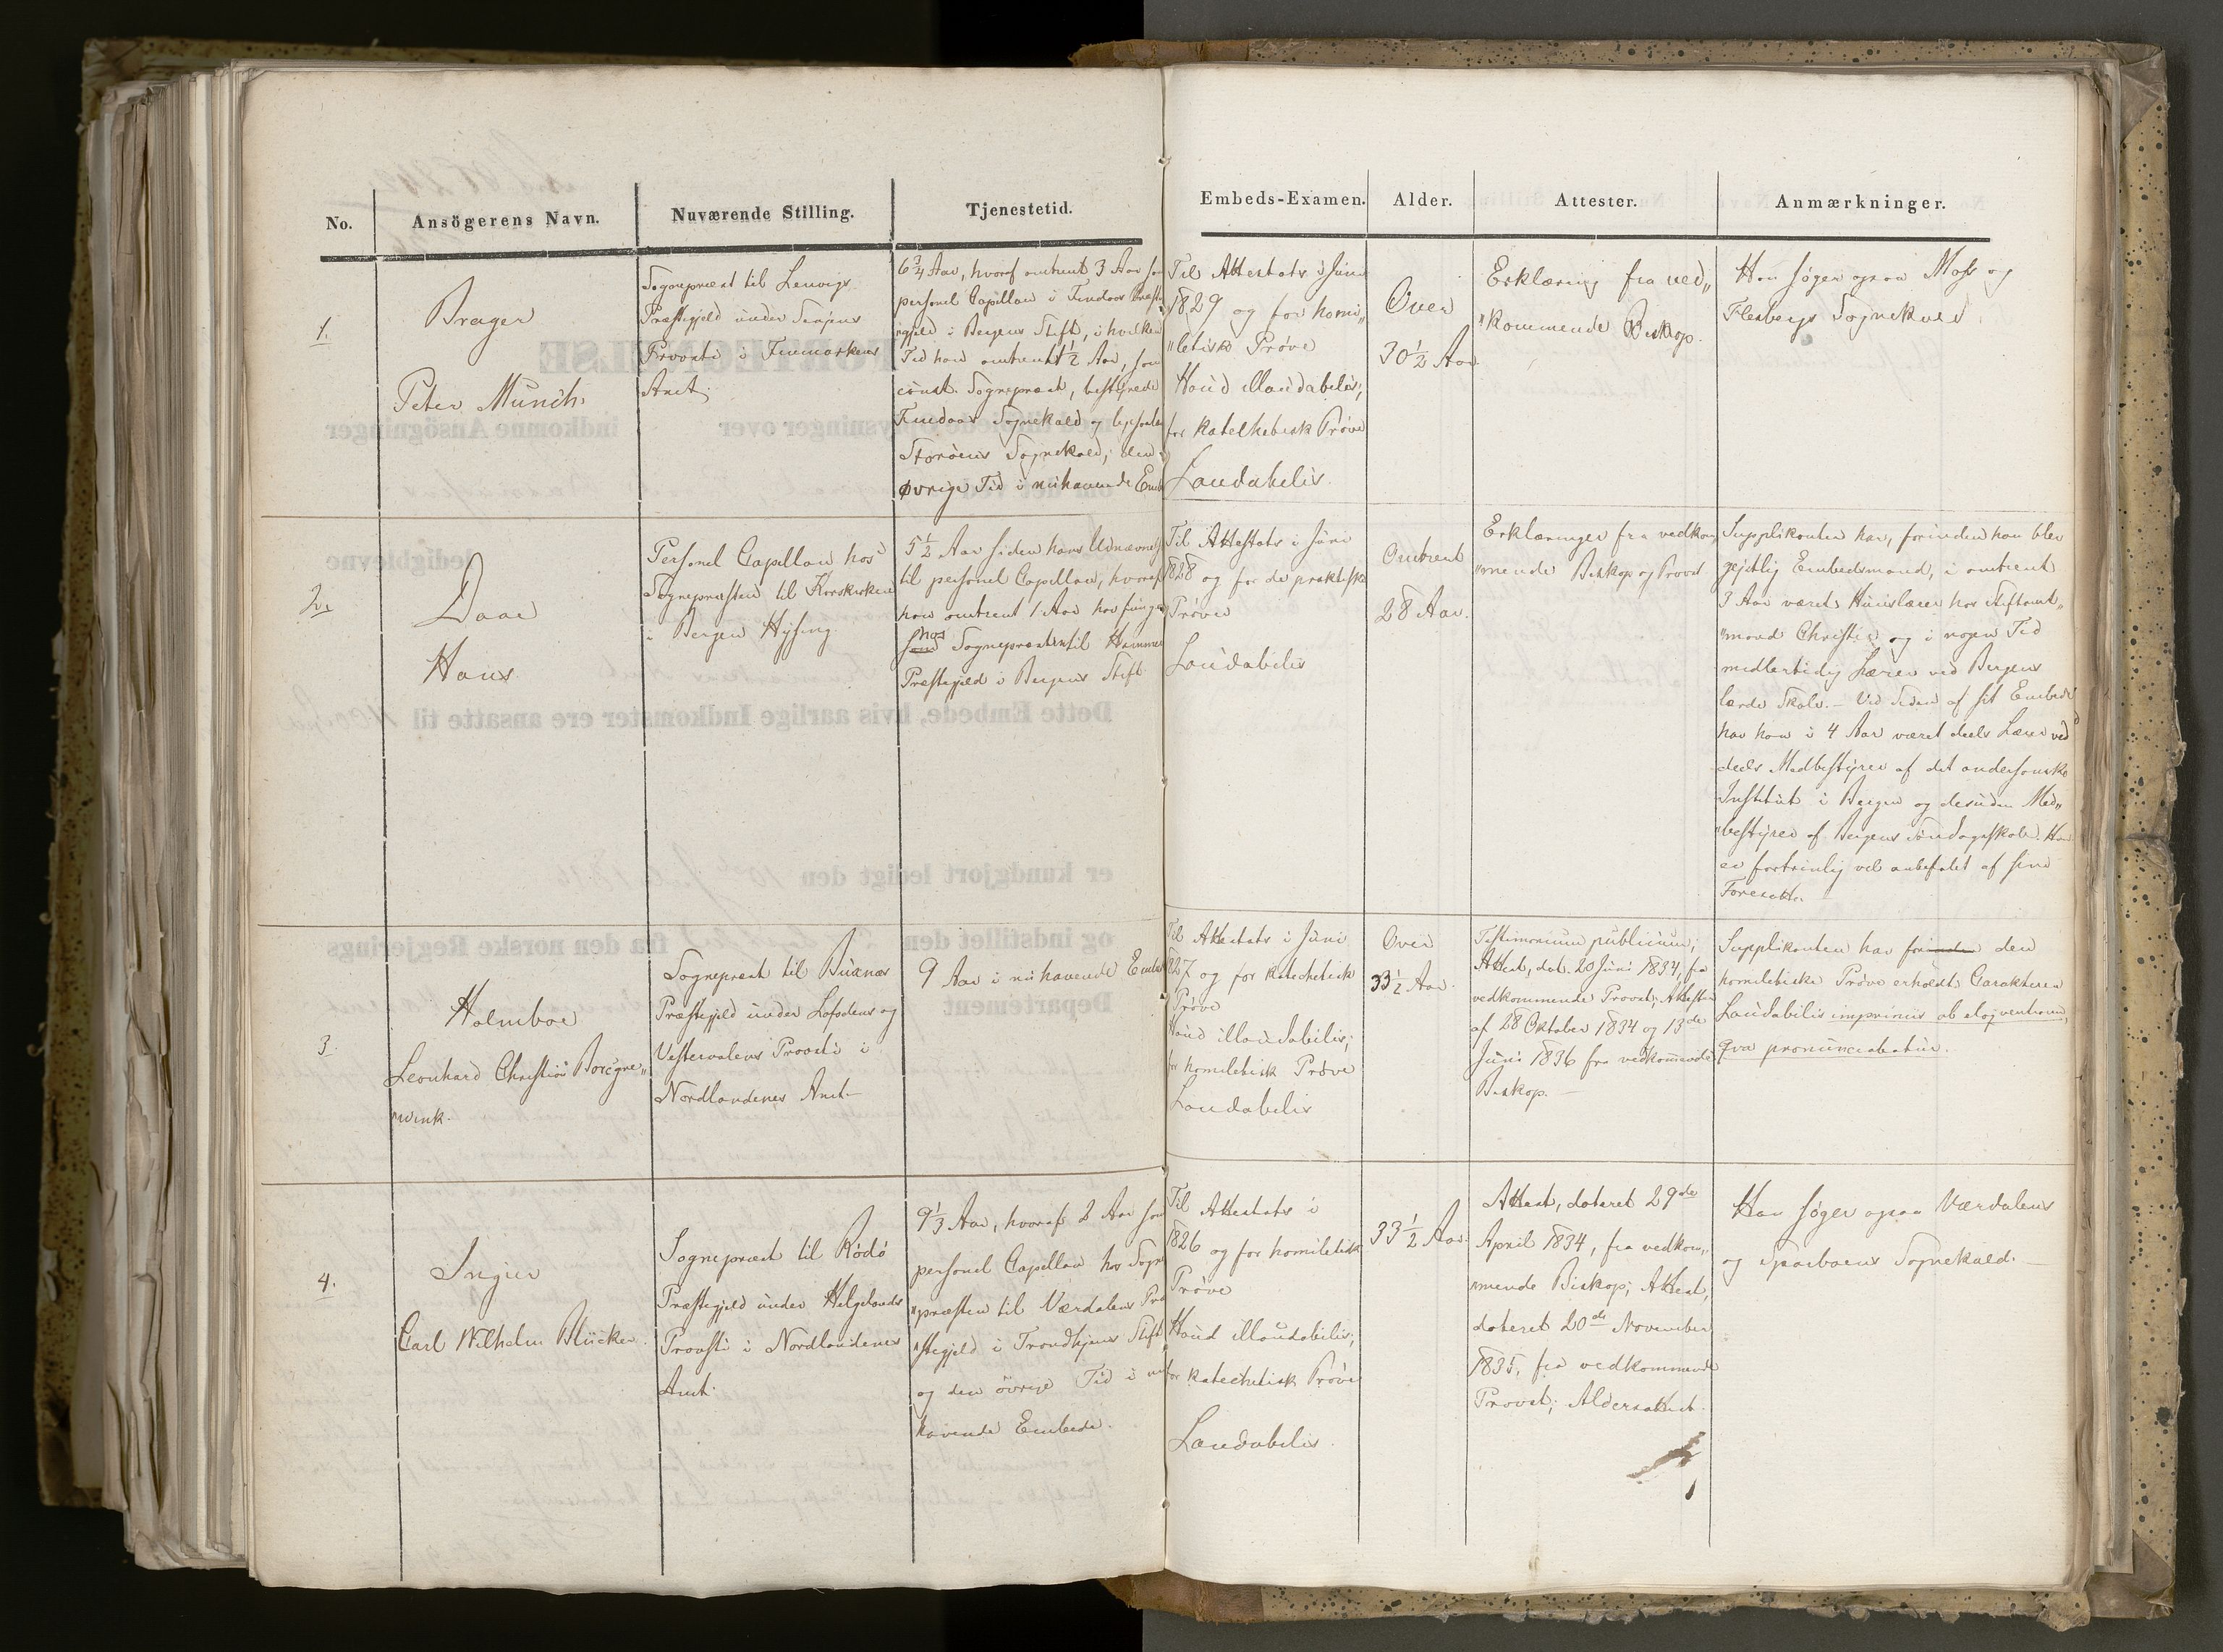 No.
Ansögerens Navn.
Nuværende Stilling.
Tjenestetid.
Embeds-Examen.
Alder.
Attester.
Anmærkninger.
1.
Brager
Peter Münch
Sognepræst til Lenvigs
Præstegjeld under Senjens
Provsti i Finmarkens
Amt;
6 3/4 Aar, hvoraf omtrent 3 Aar som
personel Capellan i Findaas Præste
„gjeld i Bergens Stift, i hvilken
Tid han omtrent 1/2 Aar, som
const. Sognepræst, bestyrede
Findaas Sognekald og ligesaa
Storöens Sognekald; den
øvrige Tid i nuhavende Emb
Til Attestats i Juni
1829 og for homi„
„letisk Prøve
Haud illaudabilis;
for katekhetisk Prøve
Laudabilis.
Over
30 1/2 Aar
Erklæring fra ved„
„kommende Biskop.
Han søger ogsaa Moss og
Flesbergs Sognekald.
2.
Daae
Hans
Personel Capellan hos
Sognepræsten til Korskirken
i Bergen Hysing
5 1/2 Aar siden hans Udnævnelse
til personel Capellan, hvoraf
han omtrent 1 Aar har funger
hos
som Sognepræsten til Hammers
Præstegjeld i Bergens Stift
Til Attestats i Juni
1828 og for de praktiske
Prøver
Laudabilis
Omtrent
28 Aar.
Erklæringer fra vedkom
„mende Biskop og Provst
Supplikanten har, forinden han blev
gejstlig Embedsmand, i omtrent
3 Aar været Huuslærer hos Stiftamt„
„mand Christie og i nogen Tid
midlertidig Lærer ved Bergens
lærde Skole. – Ved Siden af sit Embede
har han i 4 Aar været deels Lærer ved
deels Medbestyrer af det andersenske
Institut i Bergen og desuden Med„
„bestyrer af Bergens Søndagsskole. Han
er fortrinlig vel anbefalet af sine
Foresatte.
3.
Holmboe
Leonhard Christian Borcgre„
„wink.
Sognepræst til Buxnæs
Præstegjeld under Lofodens og
Vesteraalens Provsti i
Nordlandenes Amt –
9 Aar i nuhavende Embe
Til Attestats i Juni
1827 og for katechetisk
Prøve
Haud illaudabilis;
for homiletisk Prøve
Laudabilis
Over
33 1/2 Aar
Testimonium publicum;
Attest, dat. 20 Juni 1834, fra
vedkommende Provst; Attester
af 28 Oktober 1834 og 13de
Juni 1836 fra vedkommende
Biskop. –
Supplikanten har forinden den
homiletiske Prøve erholdt Carakteren
Laudabilis imprimis ob eloqventiam,
qva pronunciabatur.
4.
Ingier
Carl Wilhelm Blücher
Sognepræst til Rødø
Præstegjeld under Helgelands
Provsti i Nordlandenes
Amt.
9 1/3 Aar, hvoraf 2 Aar som
personel Capellan hos Sogne
„præsten til Værdalens Præ
„stegjeld i Trondhjems Stift
og den övrige Tid i nu
havende Embede.
Til Attestats i
1826 og for homiletisk
Prøve
Haud illaudabilis;
for katechetisk Prøve
Laudabilis.
33 1/2 Aar.
Attest, dateret 29de
April 1834, fra vedkom„
„mende Biskop; Attest,
dateret 20de November
1835, fra vedkommende
Provst; Aldersattest.
Han søger ogsaa Værdalens
og Sparboens Sognekald. –